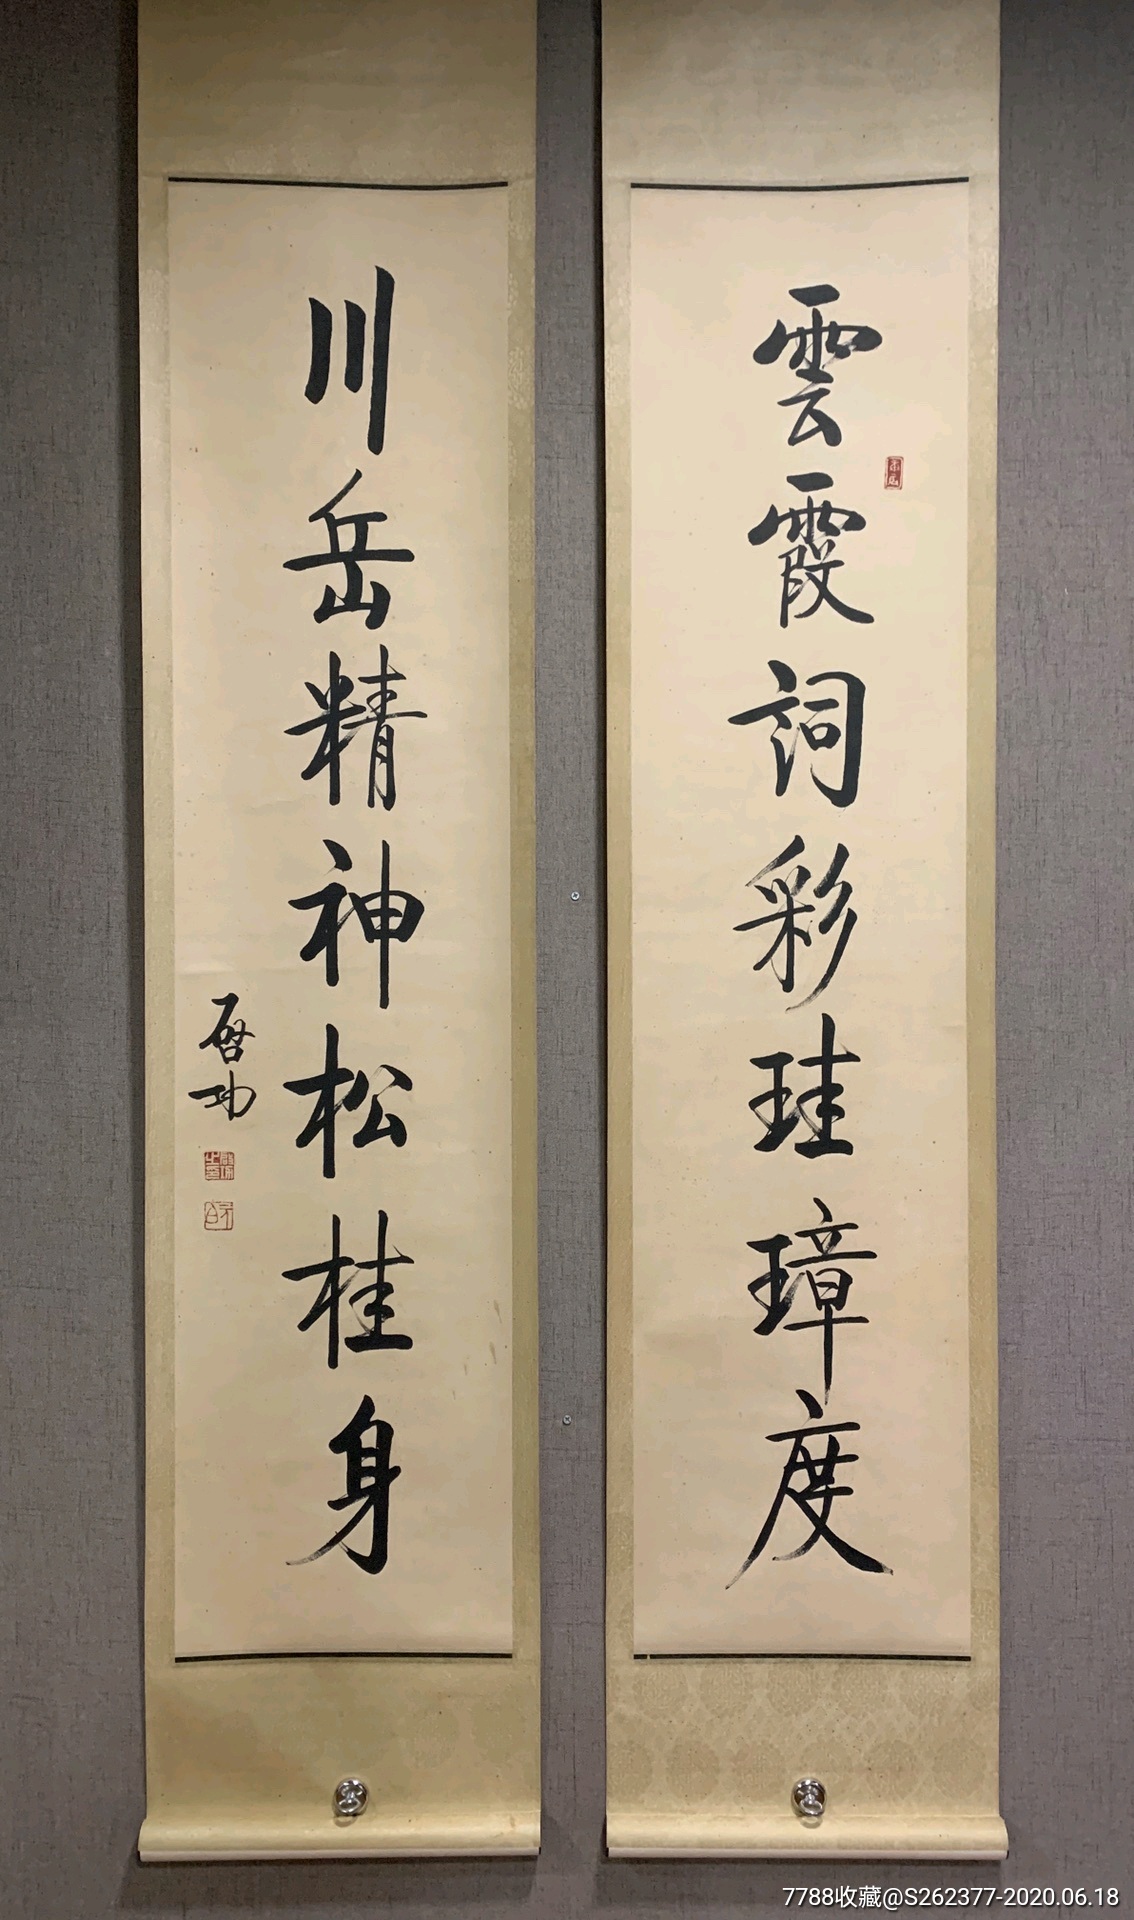 雲霞詞彩珪璋度
川岳精神松桂身
啓功
7788收藏@S262377-2020.06.18